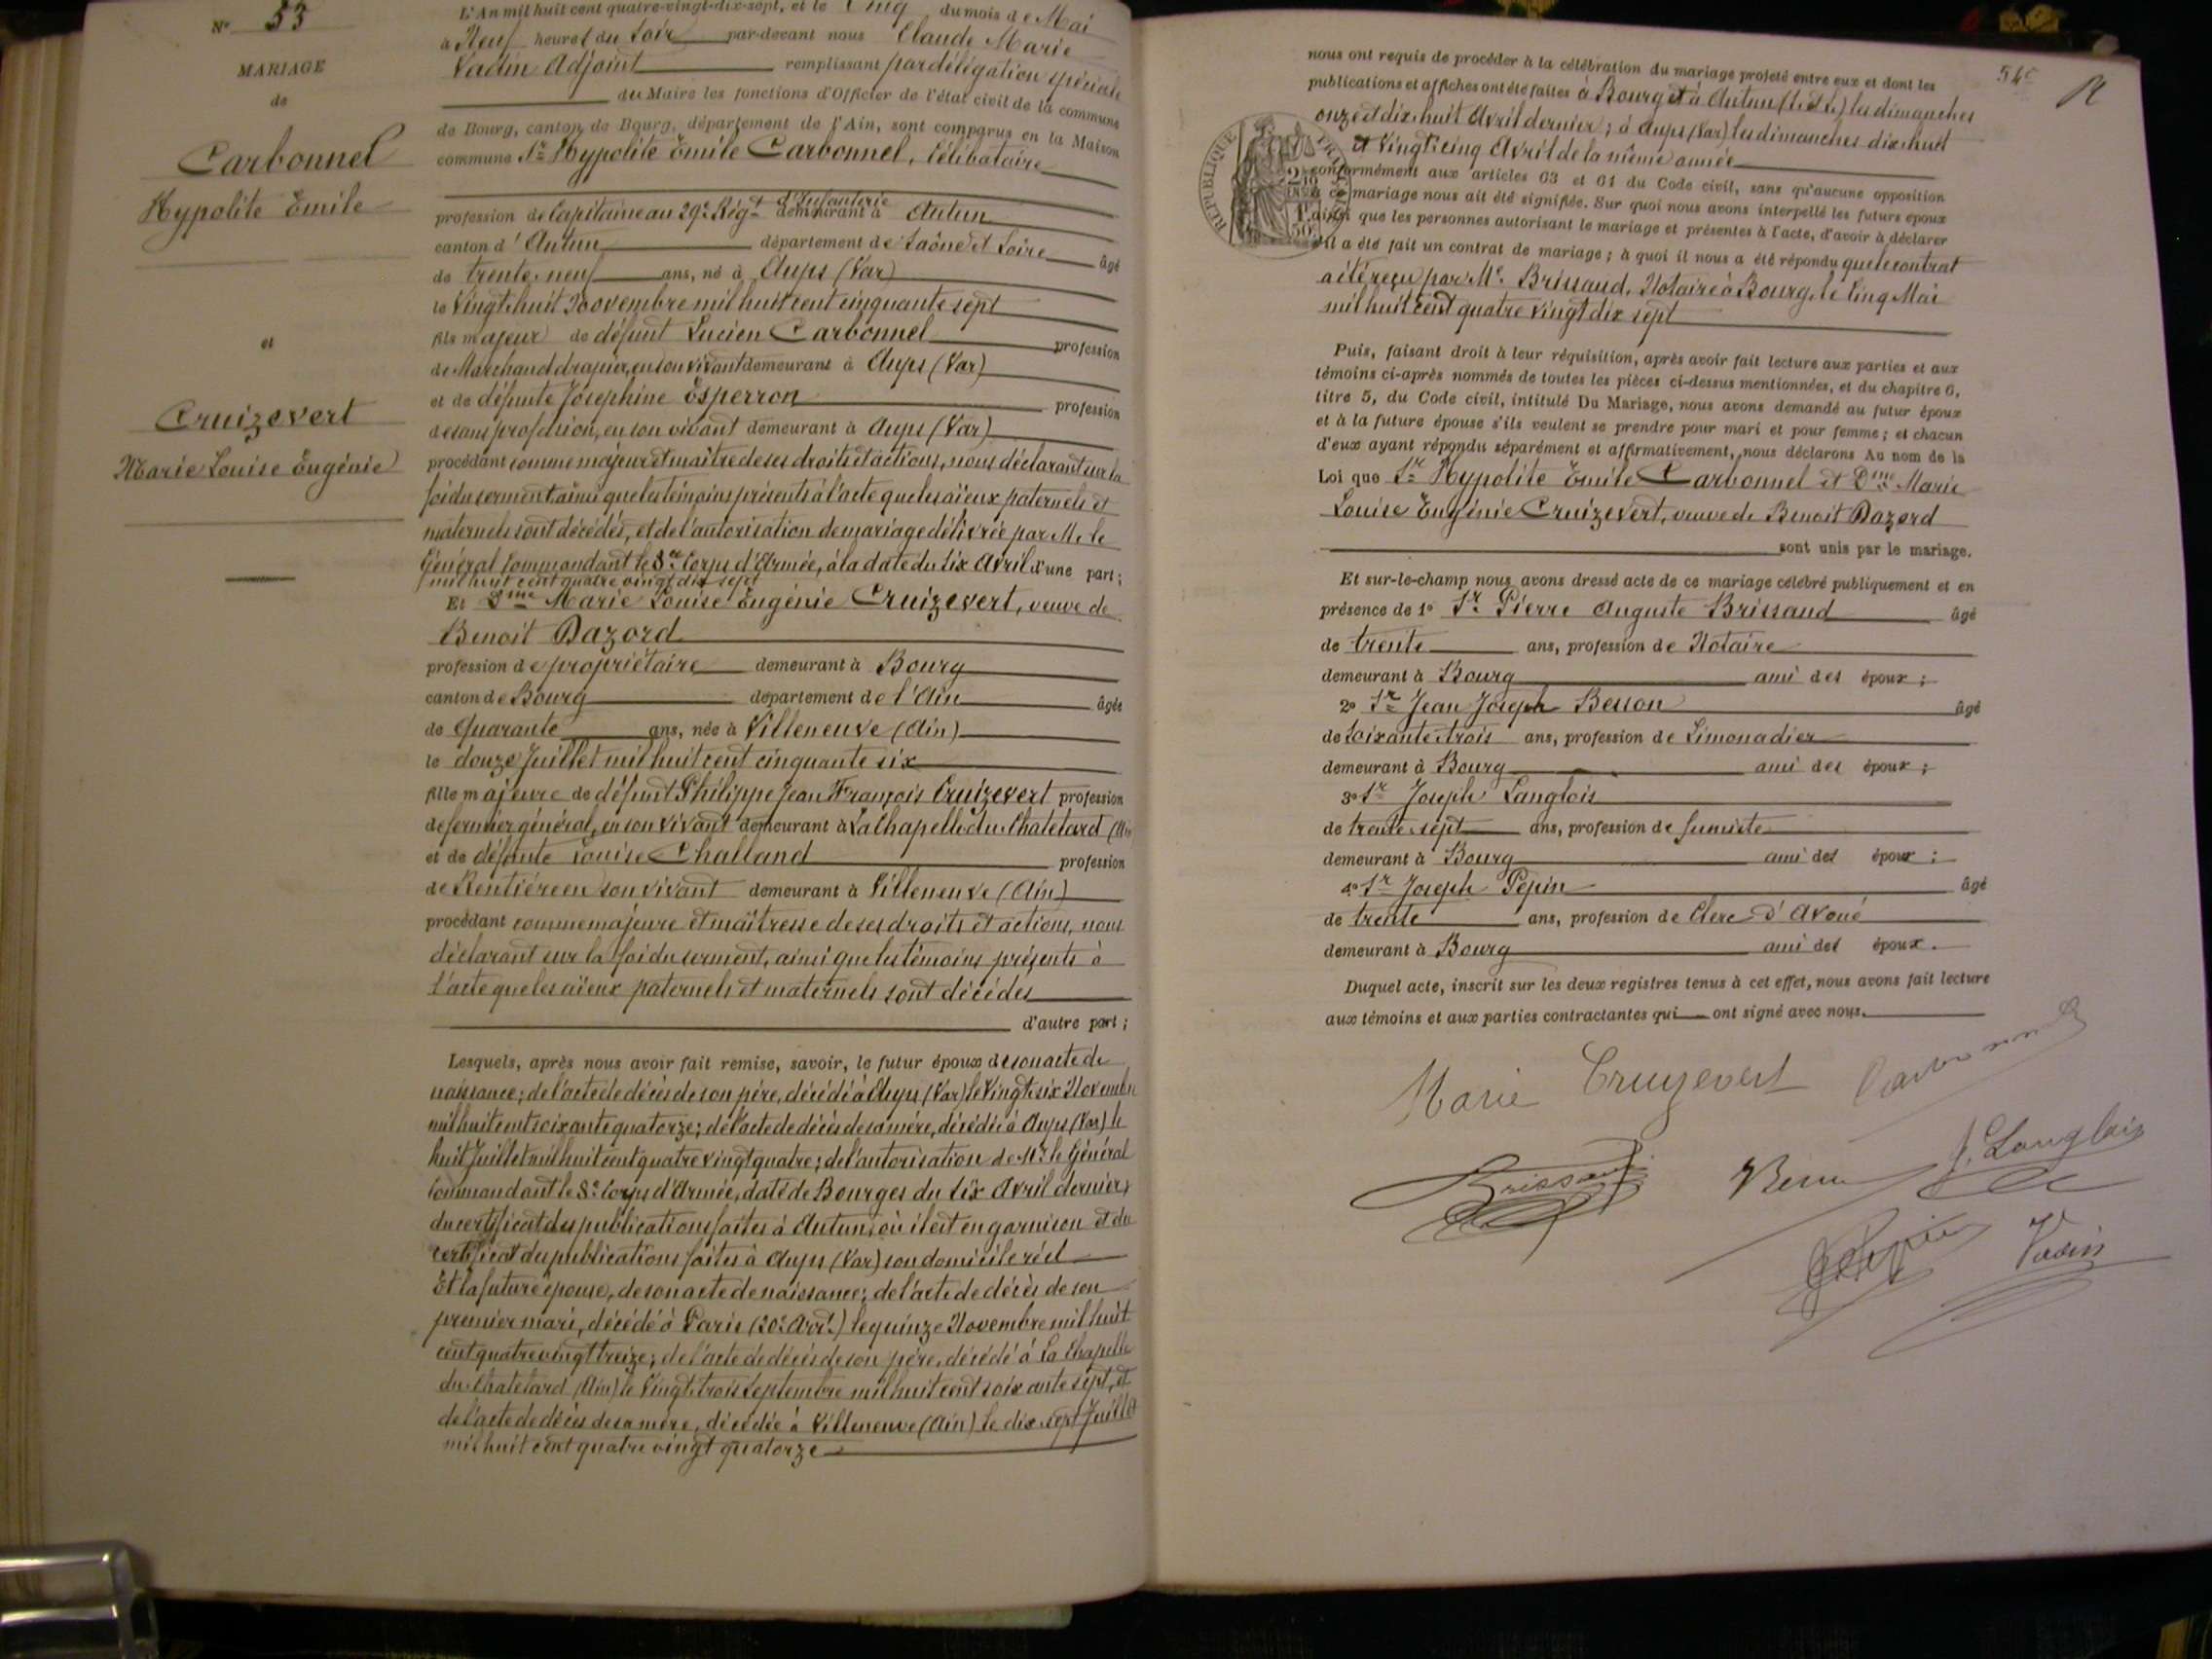 N° 53
MARIAGE
de
Carbonnel
Hypolite Emile
et
Cruizevert
Marie Louise Eugénie
L'An mil huit cent quatre-vingt-dix-sept, et le Cinq du mois de Mai
à Neuf heures du soir par-devant nous Claude Marie
Vadin Adjoint remplissant par délégation spéciale
du Maire les fonctions d'Officier de l'état civil de la commune
de Bourg, canton de Bourg, département de l'Ain, sont comparus en la Maison
commune Sr Hypolite Emile Carbonnel, Célibataire
d'Infanterie
profession de Capitaine au 29e Régt demeurant à Autun
canton d'Autun département de Saône et Loire âgé
de trente-neuf ans, né à Aups (Var)
le Vingt-huit Novembre mil huit cent cinquante sept
fils majeur de défunt Lucien Carbonnel profession
de Marchand drapier, en son vivant demeurant à Aups (Var)
et de défunte Joséphine Esperron profession
de sans profession, en son vivant demeurant à Aups (Var)
procédant comme majeur et maître de ses droits et actions, nous déclarant sur la
foi du serment ainsi que les témoins présents à l'acte que les aïeux paternels et
maternels sont décédés, et de l'autorisation de mariage délivrée par M. le
Général Commandant le 8e Corps d'Armée, à la date du six Avril d'une part;
mil huit cent quatre vingt dix sept
Et Dme Marie Louise Eugénie Cruizevert, veuve de
Benoit Dazord
profession de propriétaire demeurant à Bourg
canton de Bourg département de l'Ain âgée
de Quarante ans, née à Villeneuve (Ain)
le douze Juillet mil huit cent cinquante six
fille majeure de défunt Philippe Jean François Cruizevert profession
de fermier général, en son vivant demeurant à La Chapelle du Chatelard (Ain)
et de défunte Louise Challand profession
de Rentière en son vivant demeurant à Villeneuve (Ain)
procédant comme majeure et maîtresse de ses droits et actions, nous
déclarant sur la foi du serment, ainsi que les témoins présents à
l'acte que les aïeux paternels et maternels sont décédés
d'autre part;
Lesquels, après nous avoir fait remise, savoir, le futur époux de son acte de
naissance; de l'acte de décès de son père, décédé à Aups (Var) le Vingt-six Novembre
mil huit cent soixante quatorze; de l'acte de décès de sa mère, décédée à Aups (Var) le
huit Juillet mil huit cent quatre vingt quatre; de l'autorisation de Mr le Général
Commandant le 8e Corps d'Armée, daté de Bourges du Six Avril dernier,
du certificat des publications faites à Autun, où il est en garnison et du
certificat des publications faites à Aups (Var) son domicile réel
Et la future épouse, de son acte de naissance; de l'acte de décès de son
premier mari, décédé à Paris (20e Arrt) le quinze Novembre mil huit
cent quatre vingt treize; de l'acte de décès de son père, décédé à La Chapelle
du Chatelard (Ain) le Vingt-trois Septembre mil huit cent soixante sept, et
de l'acte de décès de sa mère, décédée à Villeneuve (Ain) le dix-sept Juillet
mil huit cent quatre vingt quatorze
54e
nous ont requis de procéder à la célébration du mariage projeté entre eux et dont les
publications et affiches ont été faites à Bourg et à Autun (S. et L.) les dimanches
onze et dix-huit Avril dernier; à Aups (Var) les dimanches dix-huit
et Vingt-cinq Avril de la même année
conformément aux articles 63 et 64 du Code civil, sans qu'aucune opposition
à ce mariage nous ait été signifiée. Sur quoi nous avons interpellé les futurs époux
ainsi que les personnes autorisant le mariage et présentes à l'acte, d'avoir à déclarer
s'il a été fait un contrat de mariage; à quoi il nous a été répondu que le contrat
a été reçu par Me Brissaud, Notaire à Bourg, le Cinq Mai
mil huit cent quatre vingt dix sept
RÉPUBLIQUE FRANÇAISE
Puis, faisant droit à leur réquisition, après avoir fait lecture aux parties et aux
témoins ci-après nommés de toutes les pièces ci-dessus mentionnées, et du chapitre 6,
titre 5, du Code civil, intitulé Du Mariage, nous avons demandé au futur époux
et à la future épouse s'ils veulent se prendre pour mari et pour femme; et chacun
d'eux ayant répondu séparément et affirmativement, nous déclarons Au nom de la
Loi que Sr Hypolite Emile Carbonnel et Dme Marie
Louise Eugénie Cruizevert, veuve de Benoit Dazord
sont unis par le mariage.
Et sur-le-champ nous avons dressé acte de ce mariage célébré publiquement et en
présence de 1° Sr Pierre Auguste Brissaud âgé
de trente ans, profession de Notaire
demeurant à Bourg ami des époux;
2° Sr Jean Joseph Besson âgé
de soixante-trois ans, profession de Limonadier
demeurant à Bourg ami des époux;
3° Sr Joseph Langlois
de trente-sept ans, profession de fumiste
demeurant à Bourg ami des époux;
4° Sr Joseph Pépin âgé
de trente ans, profession de Clerc d'Avoué
demeurant à Bourg ami des époux.
Duquel acte, inscrit sur les deux registres tenus à cet effet, nous avons fait lecture
aux témoins et aux parties contractantes qui ont signé avec nous.
Marie Cruizevert Carbonnel
Brissaud J. Langlois
Vadin